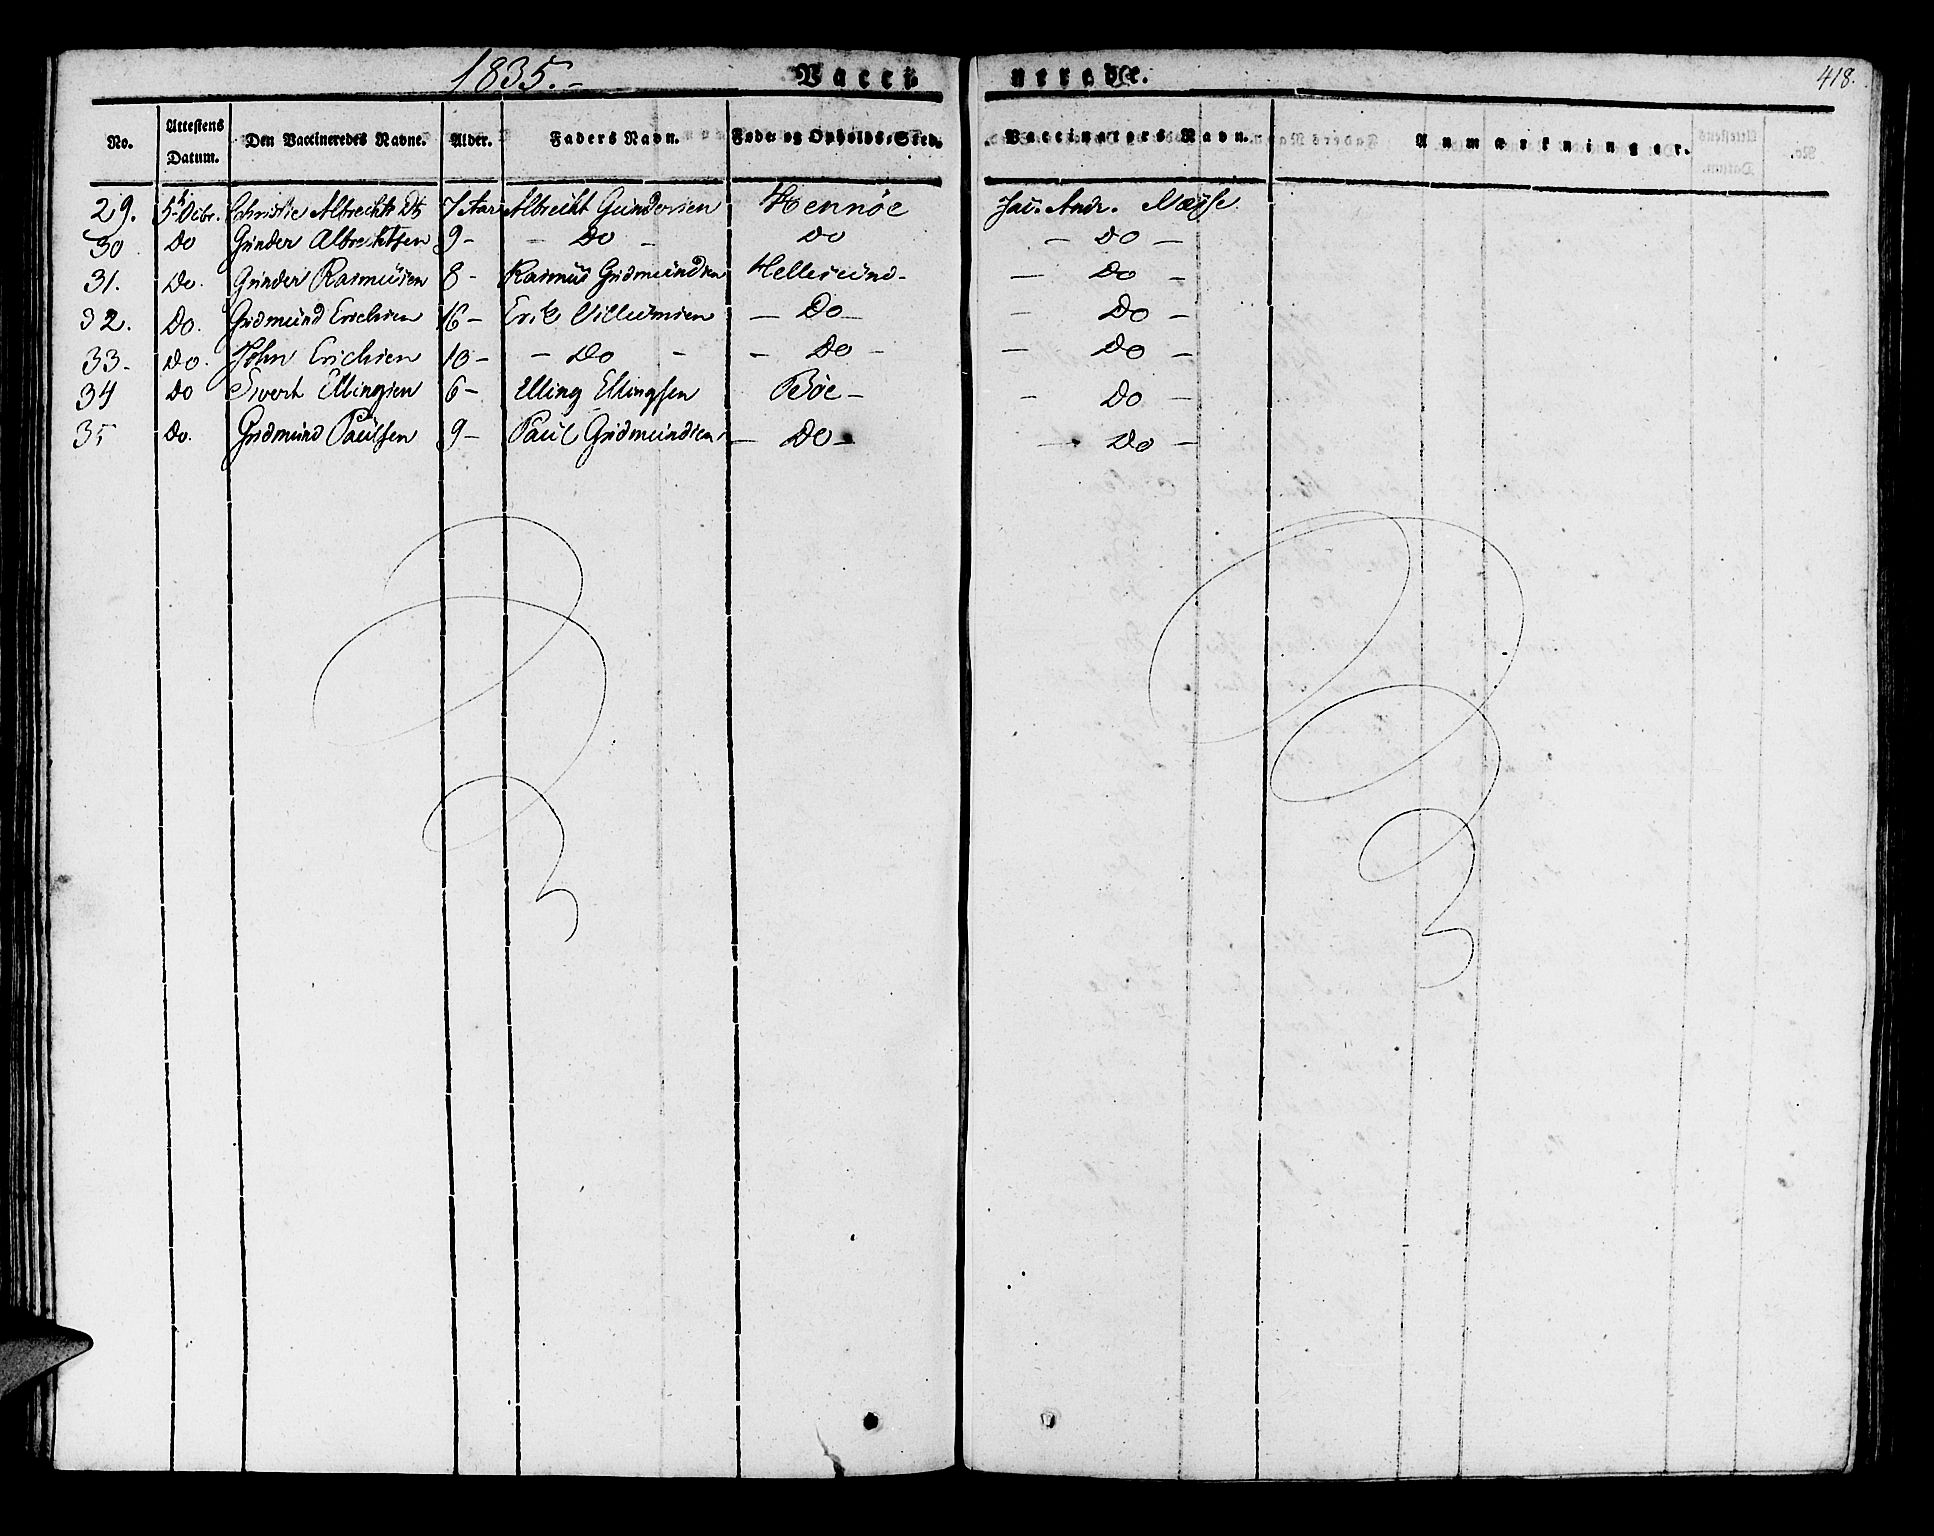 1835.- Vacci nerede. 418.
No. Attestens Datum. Den Vaccineredes Navne. Alder. Faders Navn. Føde og Opholds-Sted. Vaccinators Navn. Anmærkninger.
29. 5t Decbr. Christie Albrechts Dtr 7 Aar Albrecht Gundersen Hennöe Jac. Andr. Næsse
30 Do Gunder Albrechtsen 9- - Do - Do - Do -
31. Do. Gunder Rasmusen 8- Rasmus Gudmundsen Hellesund- - Do -
32. Do. Gudmund Erichsen 16- Erik Villumsen - Do - - Do -
33- Do. John Erichsen 10- - Do - - Do - - Do -
34 Do Sivert Ellingsen 6- Elling Ellingsen Böe- - Do -
35 Do. Gudmund Paulsen 9- Paul Gudmundsen - Do - - Do -